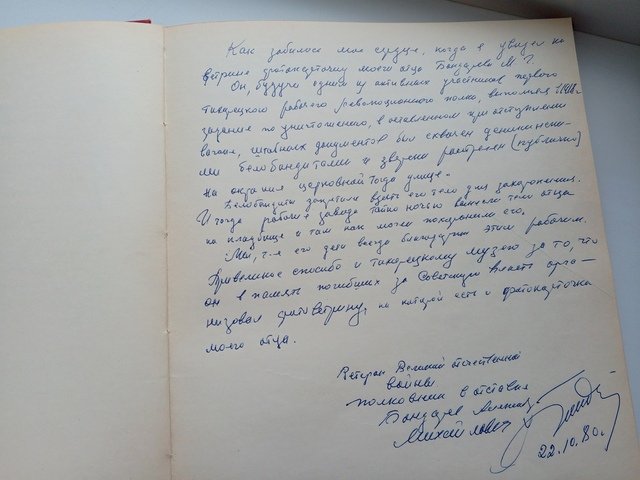 Как забилось мое сердце, когда я увидел на
витрине фотокарточку моего отца Бондарева М. Г.
Он, будучи одним из активных участников первого
тихорецкого рабочего революционного полка, выполняя в 1918 г.
задание по уничтожению, в оставленном при отступлении
вагоне, штабных документов был схвачен деникински-
ми белобандитами и зверски растрелен (публично)
на окраине церковной тогда улице.
Белобандиты запретили взять его тело для захоронения.
И тогда рабочие завода тайно ночью вынесли тело отца
на кладбище и там как могли похоронили его.
Мы, его дети всегда благодарны этим рабочим.
Превеликое спасибо и тихорецкому музею за то, что
он в память погибших за Советскую власть орга-
низовал фотовитрину, на которой есть и фотокарточка
моего отца.
Ветеран Великой отечественной
войны
полковник в отставке
Бондарев
Михайлович
22.10.80г.